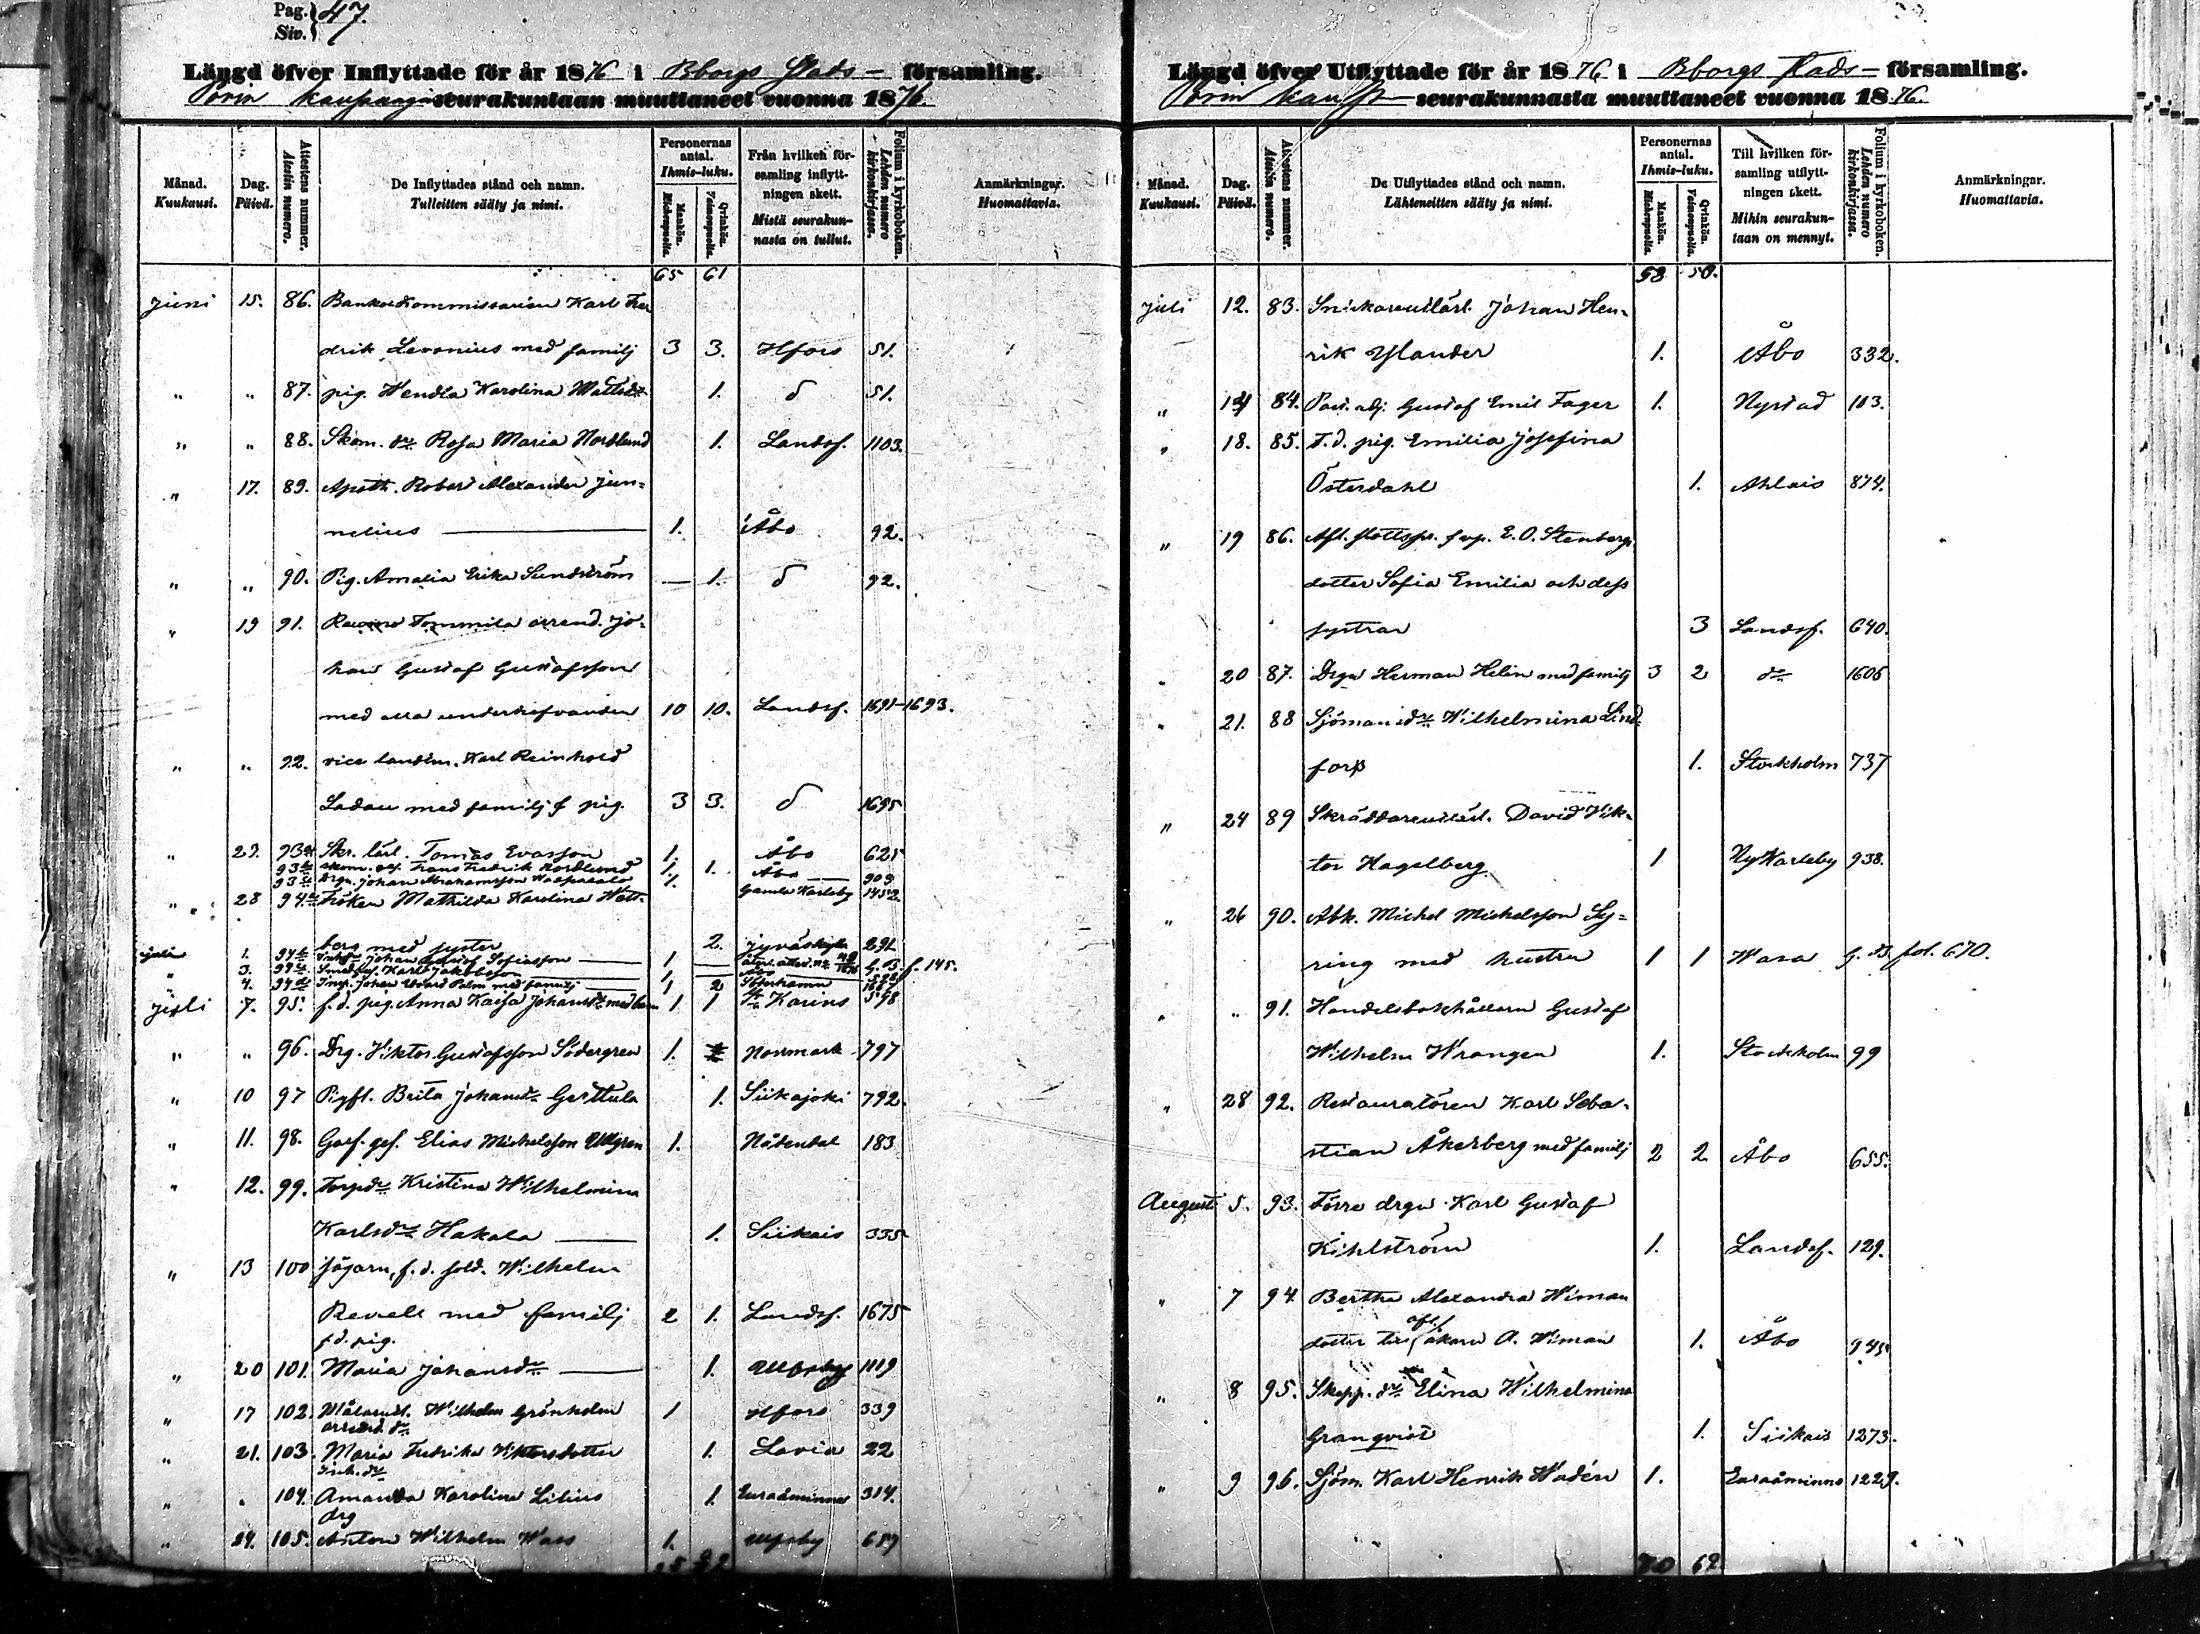 Pag. 47.
Siv.
Längd öfver Inflyttade för år 1876 i Bborgs Stads- församling.
Porin kaupungin seurakuntaan muuttaneet vuonna 1876.
Månad. Kuukausi.
Dag. Päivä.
Attestens nummer. Atestin numero.
De Inflyttades stånd och namn. Tulleitten sääty ja nimi.
Personernas antal. Ihmis-luku.
Mankön. Miehenpuolia.
Qvinkön. Vaimonpuolia.
Från hvilken församling inflyttningen skett. Mistä seurakunnasta on tullut.
Folium i kyrkoboken. Lehden numero kirkonkirjassa.
Anmärkningar. Huomattavia.
65 61
Juni 15. 86. Bankokommissarien Karl Fre
drik Levonius med familj 3 3. Hfors 51.
" " 87. pig. Hendla Karolina Mattsdr 1. d 51.
" " 88. Skom. dr Rosa Maria Nordlund 1. Landsf. 1103.
" 17. 89. Apoth. Robert Alexander Jun-
nelius 1. Åbo 92.
" " 90. Pig. Amalia Erika Sundström 1. d 92.
" 19 91. Tommila arrend. Jo-
han Gustaf Gustafsson
med alla underhafvanden 10 10. Landsf. 1691-1693.
" " 92. vice landtm. Karl Reinhold
Ladau med familj & pig. 3 3. d 1695
" 23. 93 Skr. lärl. Tomas Evasson 1. Åbo 625
93 skom. ges. Frans Fredrik Nordlund 1. 1. Åbo 909
93 Drgn. Johan Abrahamsson 1. Gamla Karleby 1452.
" 28 94 Fröken Mathilda Karolina Wett-
berg med syster 2. Jyväskylä 291
juli 1. 94 Johan Gustaf Sofiasson 1 f. 145.
" 3. 94 Smedges. Karl Jakobsson 1 Åbo
" 4. 94 Insp. Johan Edvard Palm med familj 1 2
Juli 7. 95. f.d. pig. Anna Kaisa Johansdr med barn 1 1 St Karins 598
" " 96. Drg. Viktor Gustafsson Södergren 1. Norrmark 797
" 10 97 Pigfl. Brita Johansdr Gerttula 1. Siikajoki 792.
" 11. 98. Garf. ges. Elias Michelsson Ullgren 1. Nådendal 183
" 12. 99. Torpdr Kristina Wilhelmina
Karlsdr Hakala 1. Siikais 335
" 13 100 Jägarn, f.d. sold. Wilhelm
Revell med familj 2 1. Landsf. 1675
f.d. pig.
" 20 101. Maria Johansdr 1. Ulfsby 1119
" 17 102. Målarul. Wilhelm Grönholm 1 Hfors 339
arrend. dr
" 21. 103. Maria Fredrika Viktorsdotter 1. Lavia 22
Inh. dr
" " 104. Amanda Karolina Lilius 1. Euraåminne 314.
drg
" 24. 105. Anton Wilhelm Wass 1. Ulfsby 659
Längd öfver Utflyttade för år 1876 i Bborgs stads- församling.
Porin kaup seurakunnasta muuttaneet vuonna 1876.
Månad. Kuukausi.
Dag. Päivä.
Attestens nummer. Atestin numero.
De Utflyttades stånd och namn. Lähteneitten sääty ja nimi.
Personernas antal. Ihmis-luku.
Mankön. Miehenpuolia.
Qvinkön. Vaimonpuolia.
Till hvilken församling utflyttningen skett. Mihin seurakuntaan on mennyt.
Folium i kyrkoboken. Lehden numero kirkonkirjassa.
Anmärkningar. Huomattavia.
58 50.
Juli 12. 83. Snickareulärl. Johan Hen-
rik Ylander 1. Åbo 332.
" 14 84. Past. adj. Gustaf Emil Fager 1. Nystad 103.
" 18. 85. F.d. pig. Emilia Josefina
Österdahl 1. Ahlais 874.
" 19 86. E. O. Stenbergs
dotter Sofia Emilia och dess
systrar 3 Landsf. 640.
" 20 87. Drgn Herman Helin med familj 3 2 do 1606
" 21. 88 Sjömansdr Wilhelmina Lind-
forss 1. Stockholm 737
" 24 89 Skräddareulärl. David Vik-
tor Hagelberg 1 Ny Karleby 938.
" 26 90. Abk. Michel Michelsson Sy-
ring med hustru 1 1 Wasa G. B. fol. 670.
" " 91. Handelsbokhållarn Gustaf
Wilhelm Wrangen 1. Stockholm 99
" 28 92. Restauratören Karl Seba-
stian Åkerberg med familj 2 2 Åbo 655.
Augusti 5. 93. Förre drgn Karl Gustaf
Kihlström 1. Landsf. 129.
" 7 94. Bertha Alexandra Wiman
dotter till afl. åkarn A. Wiman 1. Åbo 945
" 8 95. Skepp. dr Elina Wilhelmina
Granqvist 1. Siikais 1273.
" 9 96. Sjöm. Karl Henrik Wadén 1. Euraåminne 1229.
70 62